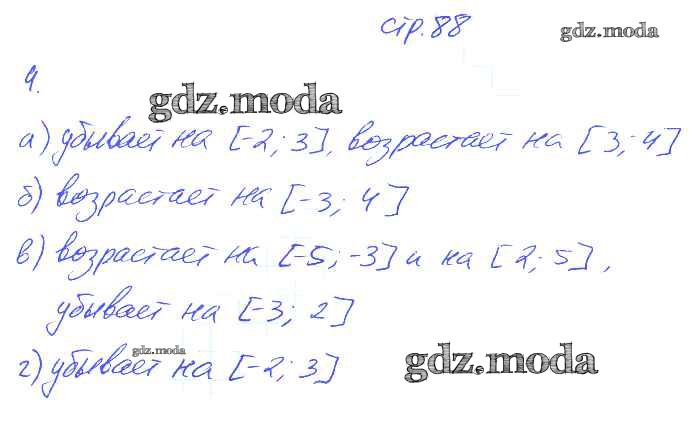 стр. 88
gdz.moda
4.
gdz.moda
а) убывает на [-2; 3], возрастает на [3; 4]
б) возрастает на [-3; 4]
в) возрастает на [-5; -3] и на [2; 5],
убывает на [-3; 2]
gdz.moda
г) убывает на [-2; 3]
gdz.moda